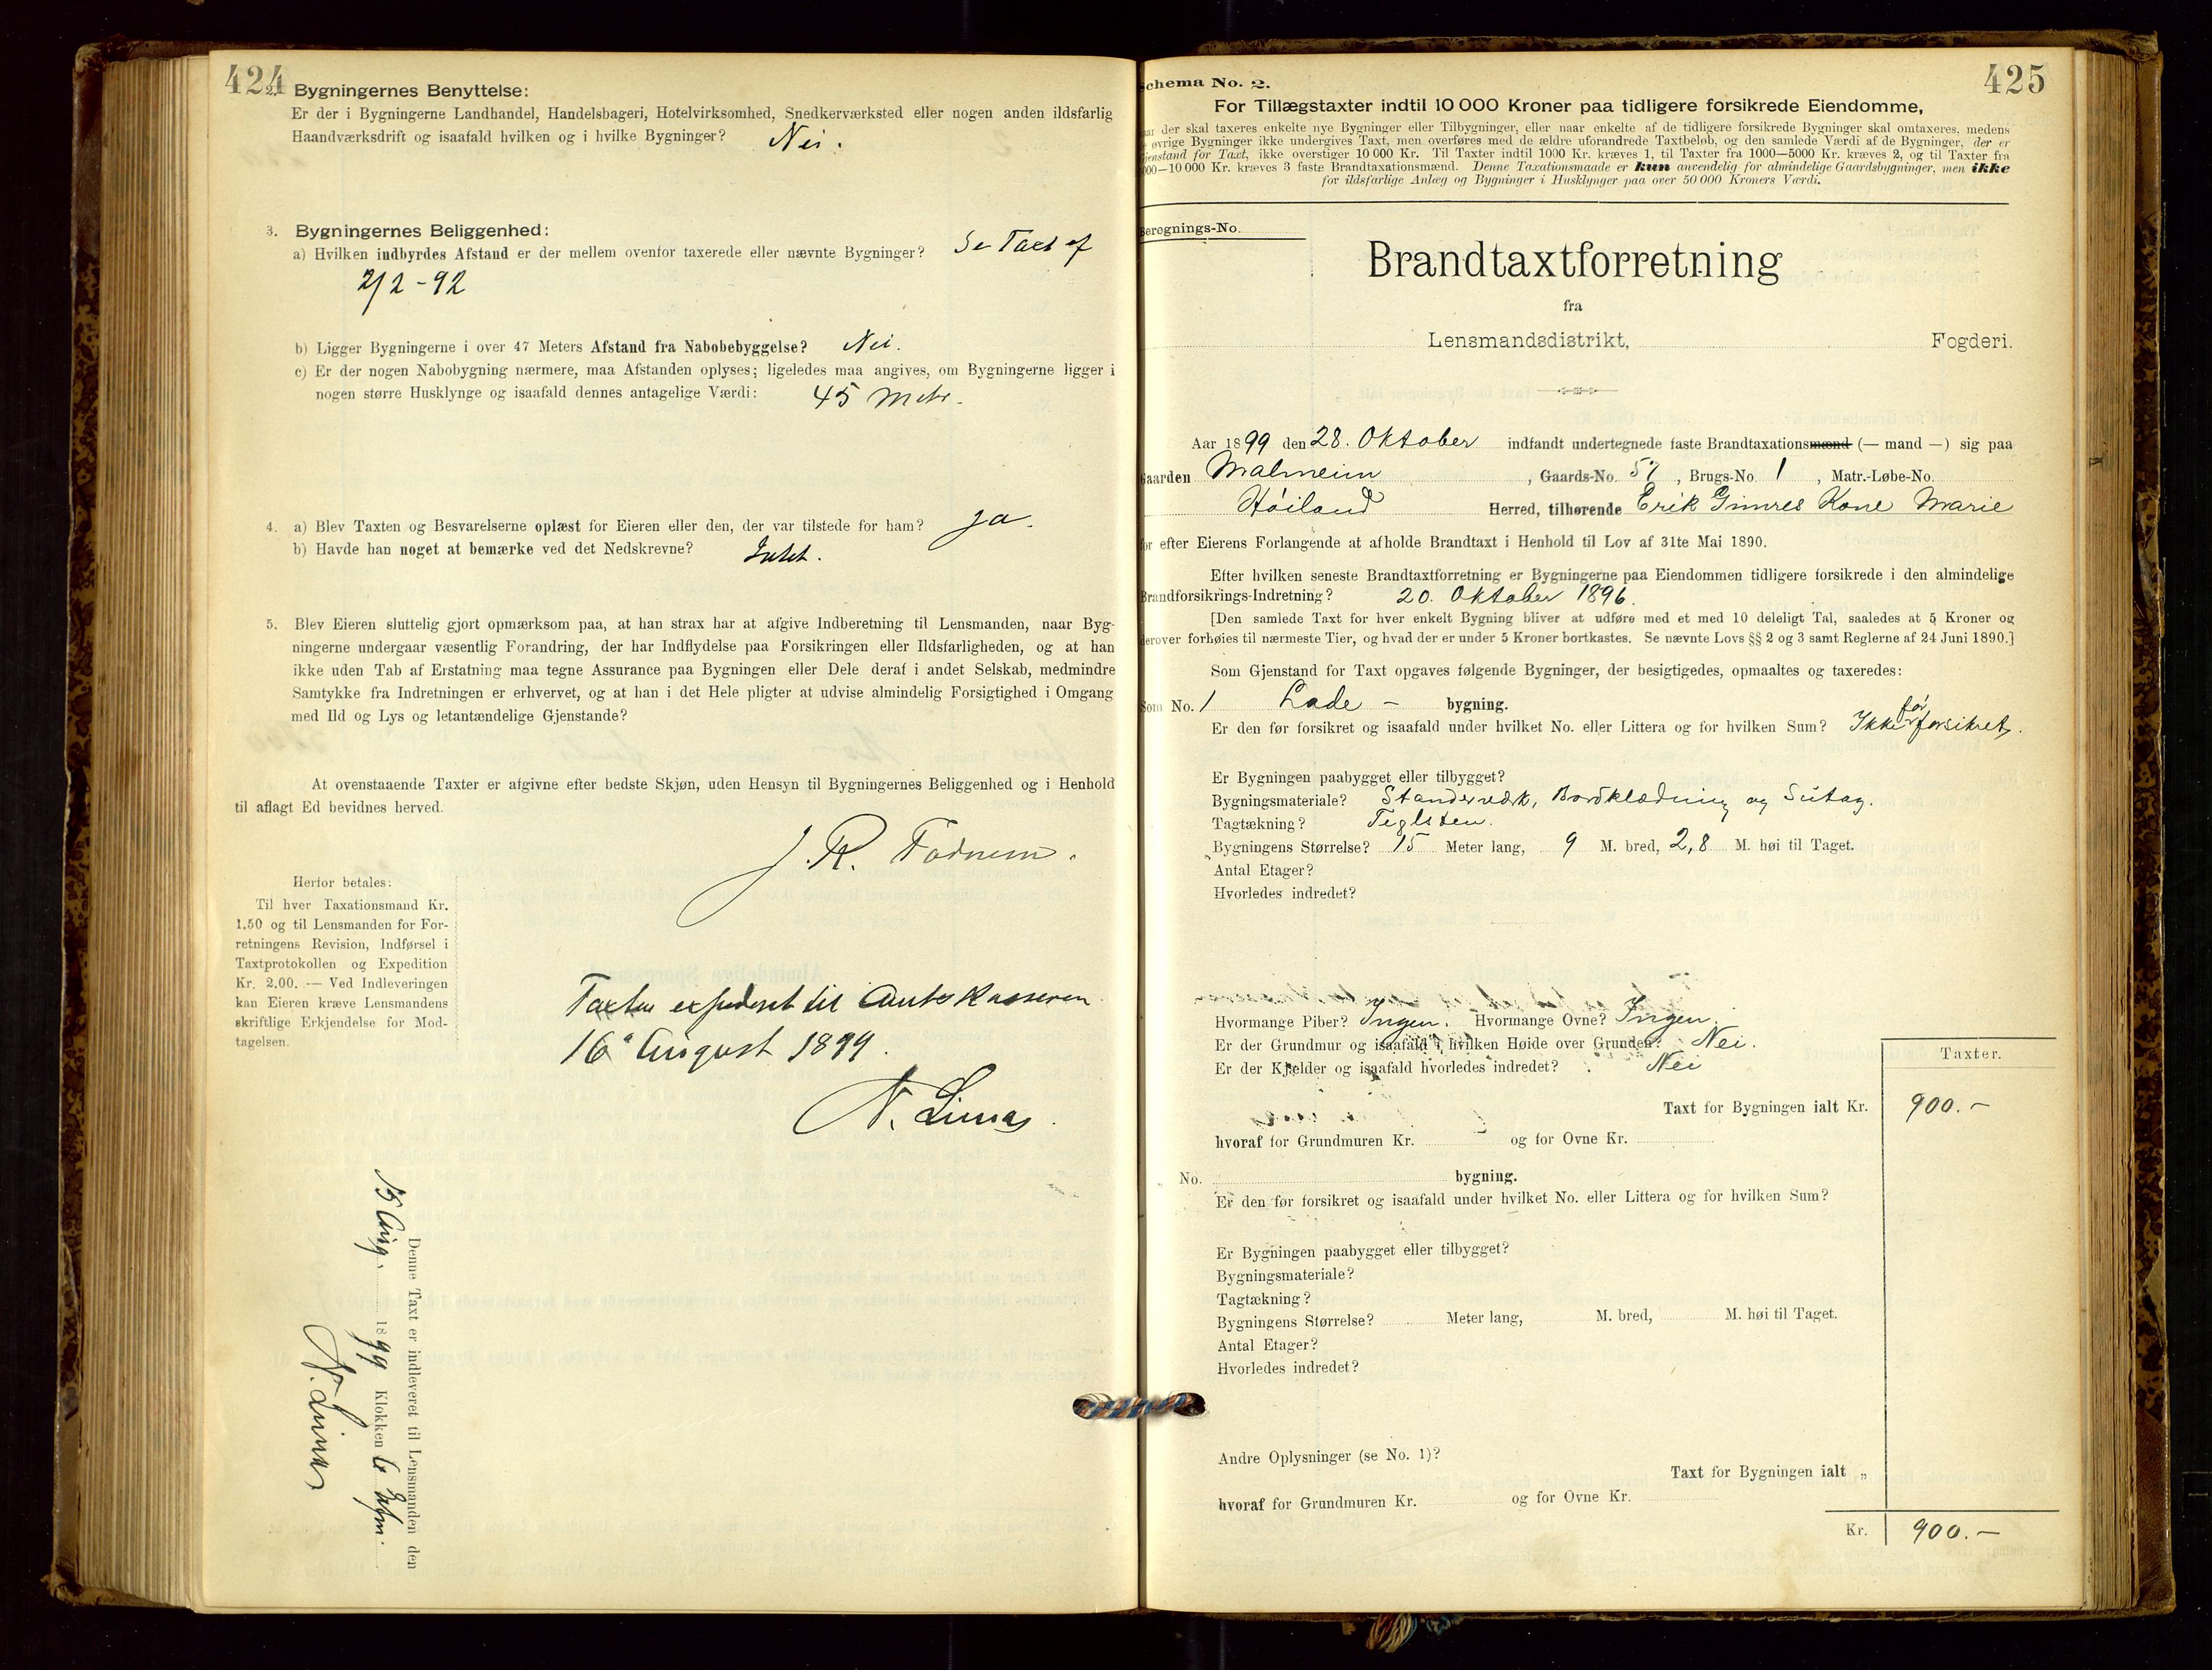 424
2. Bygningernes Benyttelse:
Er der i Bygningerne Landhandel, Handelsbageri, Hotelvirksomhed, Snedkerværksted eller nogen anden ildsfarlig
Haandværksdrift og isaafald hvilken og i hvilke Bygninger? Nei.
3. Bygningernes Beliggenhed:
a) Hvilken indbyrdes Afstand er der mellem ovenfor taxerede eller nævnte Bygninger? Se Taxt af
2/2-92
b) Ligger Bygningerne i over 47 Meters Afstand fra Nabobebyggelse? Nei.
c) Er der nogen Nabobygning nærmere, maa Afstanden oplyses; ligeledes maa angives, om Bygningerne ligger i
nogen større Husklynge og isaafald dennes antagelige Værdi: 45 Metr.
4. a) Blev Taxten og Besvarelserne oplæst for Eieren eller den, der var tilstede for ham? Ja.
b) Havde han noget at bemærke ved det Nedskrevne? Intet.
5. Blev Eieren sluttelig gjort opmærksom paa, at han strax har at afgive Indberetning til Lensmanden, naar Byg-
ningerne undergaar væsentlig Forandring, der har Indflydelse paa Forsikringen eller Ildsfarligheden, og at han
ikke uden Tab af Erstatning maa tegne Assurance paa Bygningen eller Dele deraf i andet Selskab, medmindre
Samtykke fra Indretningen er erhvervet, og at han i det Hele pligter at udvise almindelig Forsigtighed i Omgang
med Ild og Lys og letantændelige Gjenstande?
At ovenstaaende Taxter er afgivne efter bedste Skjøn, uden Hensyn til Bygningernes Beliggenhed og i Henhold
til aflagt Ed bevidnes herved.
J. R. Fodnem.
Herfor betales:
Til hver Taxationsmand Kr.
1.50 og til Lensmanden for For-
retningens Revision, Indførsel i
Taxtprotokollen og Expedition
Kr. 2.00. — Ved Indleveringen
kan Eieren kræve Lensmandens
skriftlige Erkjendelse for Mod-
tagelsen.
Taxten expederet til Amtskasseren
16 August 1899.
N. Limas.
Denne Taxt er indleveret til Lensmanden den
15 Aug. 1899 Klokken 6 Efm.
N. Limas
425
Schema No. 2.
For Tillægstaxter indtil 10 000 Kroner paa tidligere forsikrede Eiendomme,
der skal taxeres enkelte nye Bygninger eller Tilbygninger, eller naar enkelte af de tidligere forsikrede Bygninger skal omtaxeres, medens
øvrige Bygninger ikke undergives Taxt, men overføres med de ældre uforandrede Taxtbeløb, og den samlede Værdi af de Bygninger, der er
Gjenstand for Taxt, ikke overstiger 10 000 Kr. Til Taxter indtil 1000 Kr. kræves 1, til Taxter fra 1000—5000 Kr. kræves 2, og til Taxter fra
000—10 000 Kr. kræves 3 faste Brandtaxationsmænd. Denne Taxationsmaade er kun anvendelig for almindelige Gaardsbygninger, men ikke
for ildsfarlige Anlæg og Bygninger i Husklynger paa over 50 000 Kroners Værdi.
Beregnings-No.
Brandtaxtforretning
fra
Lensmandsdistrikt, Fogderi.
Aar 1899 den 28. Oktober indfandt undertegnede faste Brandtaxationsmænd (— mand —) sig paa
Gaarden Malmeim, Gaards-No. 57, Brugs-No. 1, Matr.-Løbe-No.
Høiland Herred, tilhørende Erik Gimres Kone Marie
for efter Eierens Forlangende at afholde Brandtaxt i Henhold til Lov af 31te Mai 1890.
Efter hvilken seneste Brandtaxtforretning er Bygningerne paa Eiendommen tidligere forsikrede i den almindelige
Brandforsikrings-Indretning? 20. Oktober 1896.
[Den samlede Taxt for hver enkelt Bygning bliver at udføre med et med 10 deleligt Tal, saaledes at 5 Kroner og
derover forhøies til nærmeste Tier, og hvad der er under 5 Kroner bortkastes. Se nævnte Lovs §§ 2 og 3 samt Reglerne af 24 Juni 1890.]
Som Gjenstand for Taxt opgaves følgende Bygninger, der besigtigedes, opmaaltes og taxeredes:
Som No. 1 Lade - bygning.
Er den før forsikret og isaafald under hvilket No. eller Littera og for hvilken Sum? Ikke før forsikret.
Er Bygningen paabygget eller tilbygget?
Bygningsmateriale? Standerværk, Bordklædning og Sutag.
Tagtækning? Teglsten.
Bygningens Størrelse? 15 Meter lang, 9 M. bred, 2,8 M. høi til Taget.
Antal Etager?
Hvorledes indredet?
Hvormange Piber? Ingen. Hvormange Ovne? Ingen.
Er der Grundmur og isaafald i hvilken Høide over Grunden? Nei.
Er der Kjelder og isaafald hvorledes indredet? Nei
Taxter.
Taxt for Bygningen ialt Kr. 900.-
hvoraf for Grundmuren Kr. og for Ovne Kr.
No. bygning.
Er den før forsikret og isaafald under hvilket No. eller Littera og for hvilken Sum?
Er Bygningen paabygget eller tilbygget?
Bygningsmateriale?
Tagtækning?
Bygningens Størrelse? Meter lang, M. bred, M. høi til Taget.
Antal Etager?
Hvorledes indredet?
Andre Oplysninger (se No. 1)?
Taxt for Bygningen ialt „
hvoraf for Grundmuren Kr. og for Ovne Kr.
Kr. 900.-